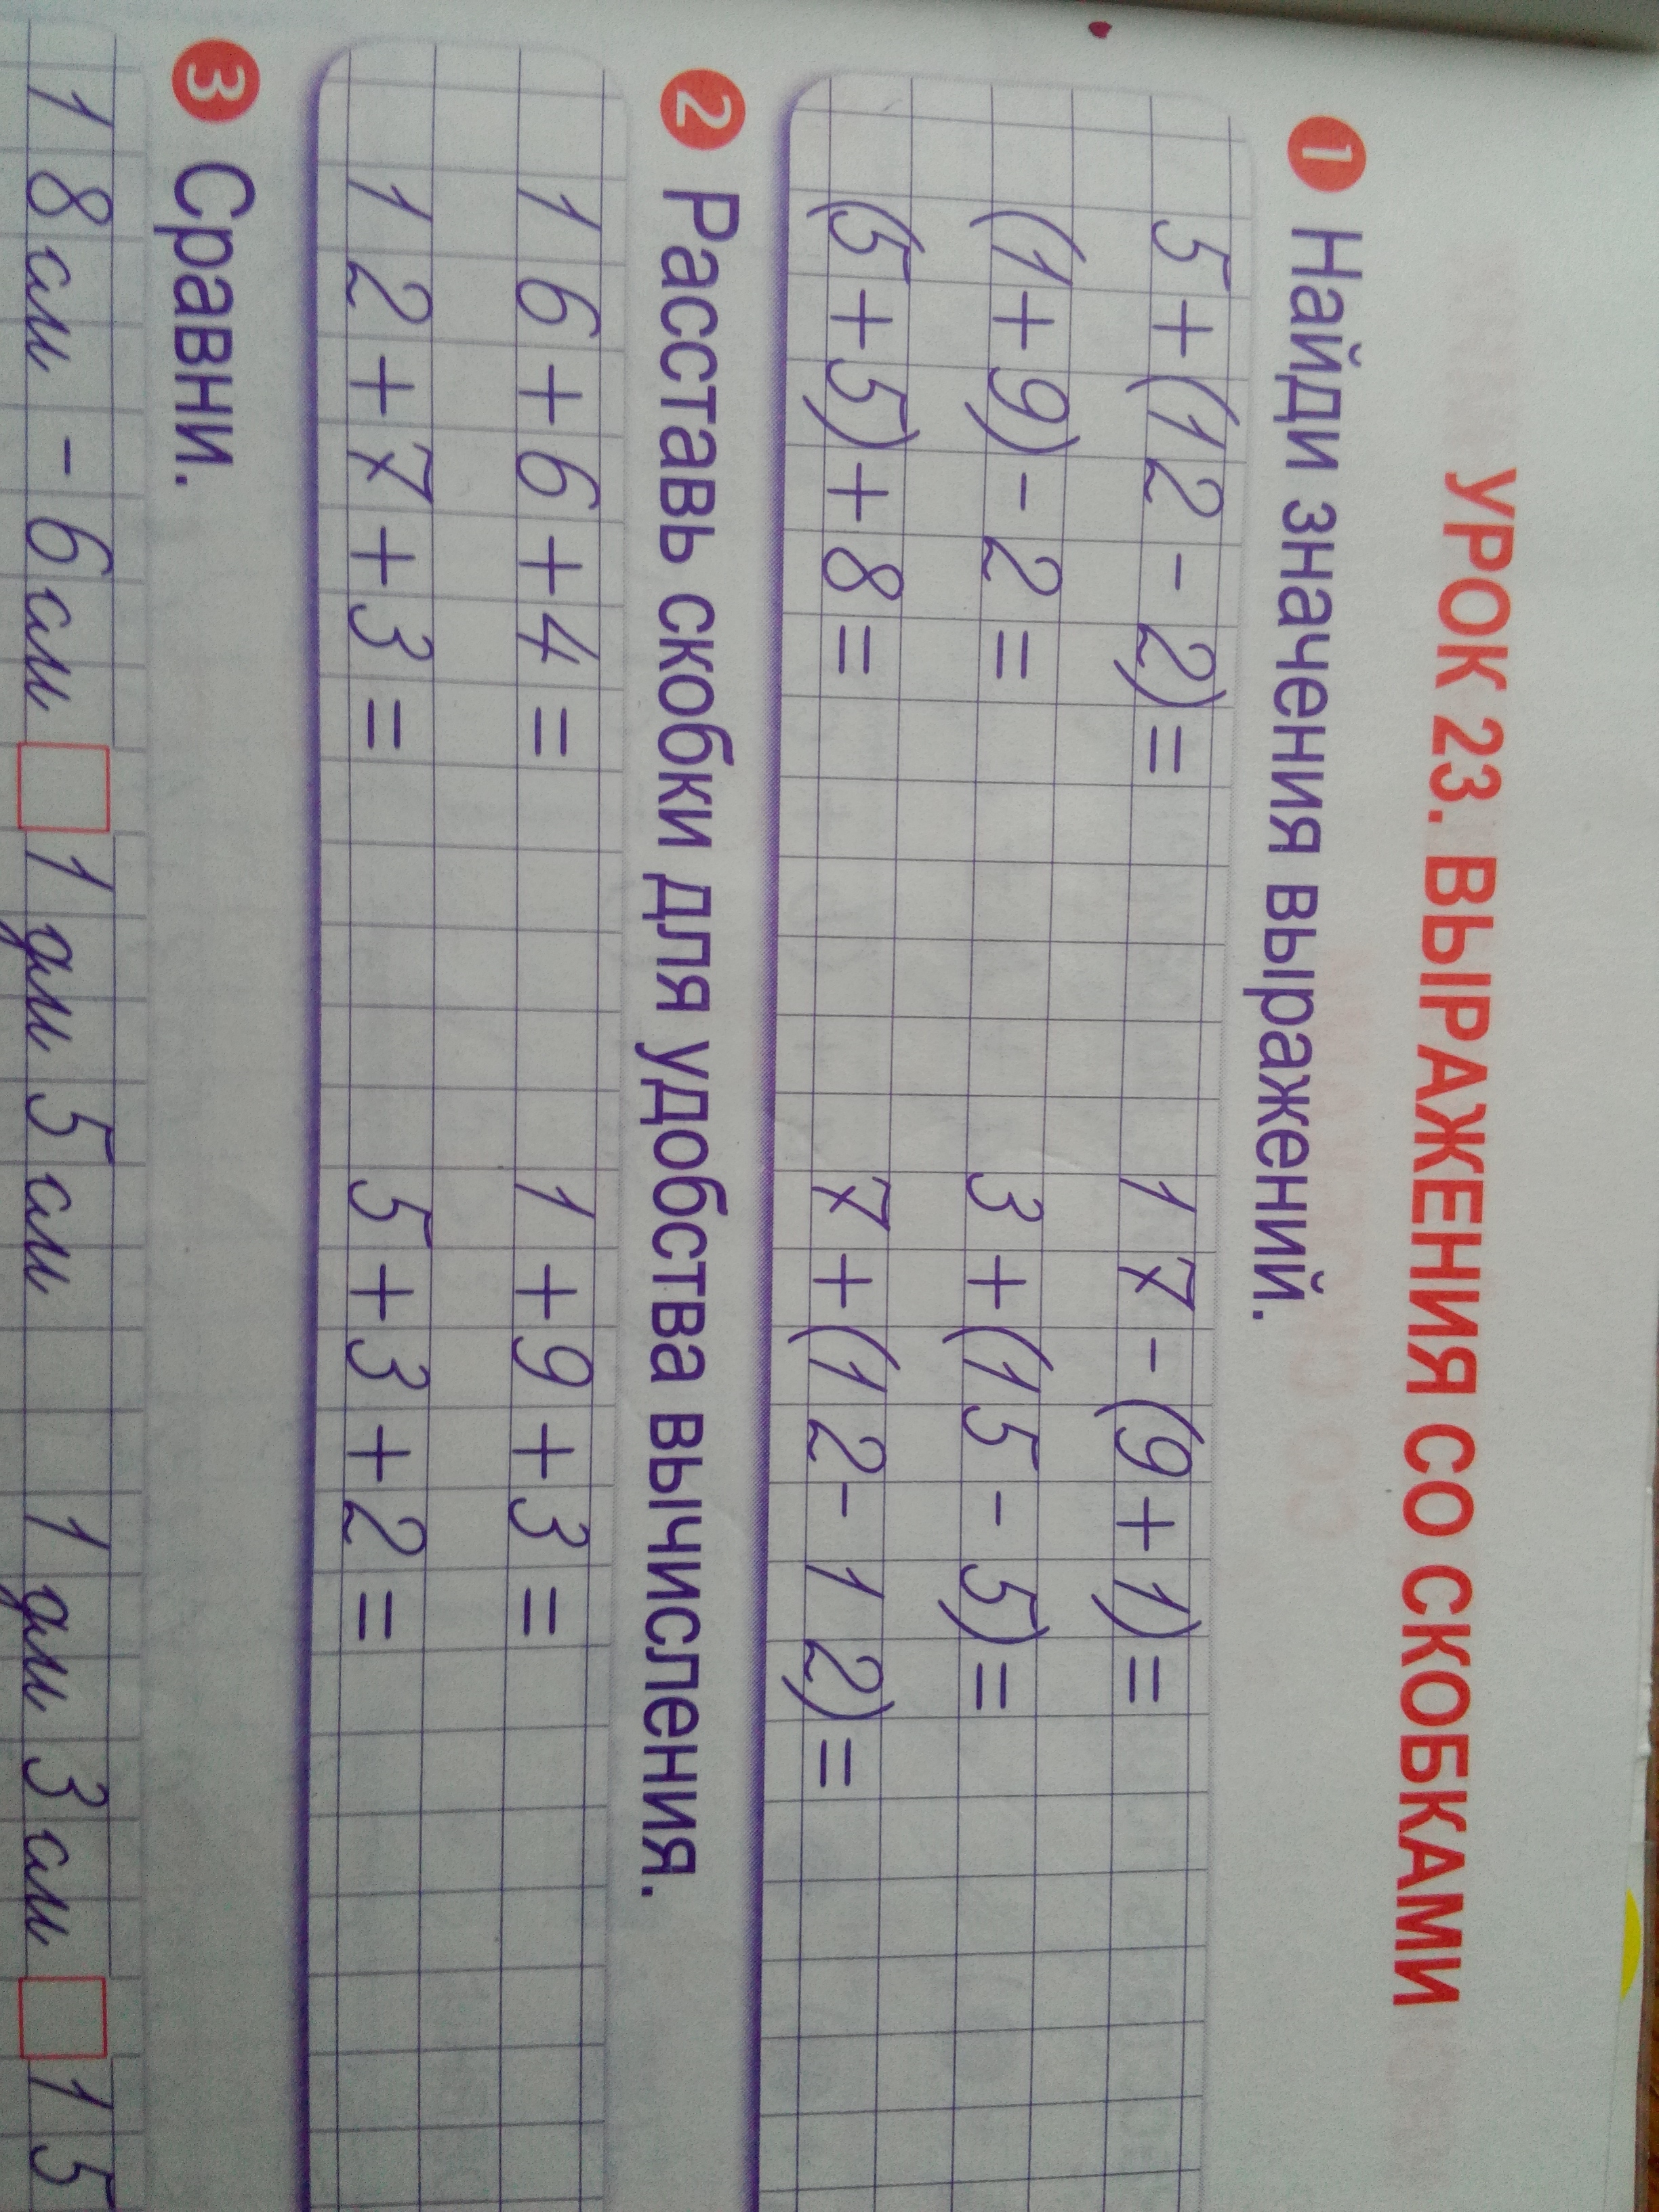 УРОК 23. ВЫРАЖЕНИЯ СО СКОБКАМИ
1 Найди значения выражений.
5+(12-2)= 17-(9+1)=
(1+9)-2= 3+(15-5)=
(5+5)+8= 7+(12-12)=
2 Расставь скобки для удобства вычисления.
16+6+4= 1+9+3=
12+7+3= 5+3+2=
3 Сравни.
18 см - 6 см □ 1 дм 5 см 1 дм 3 см □ 15